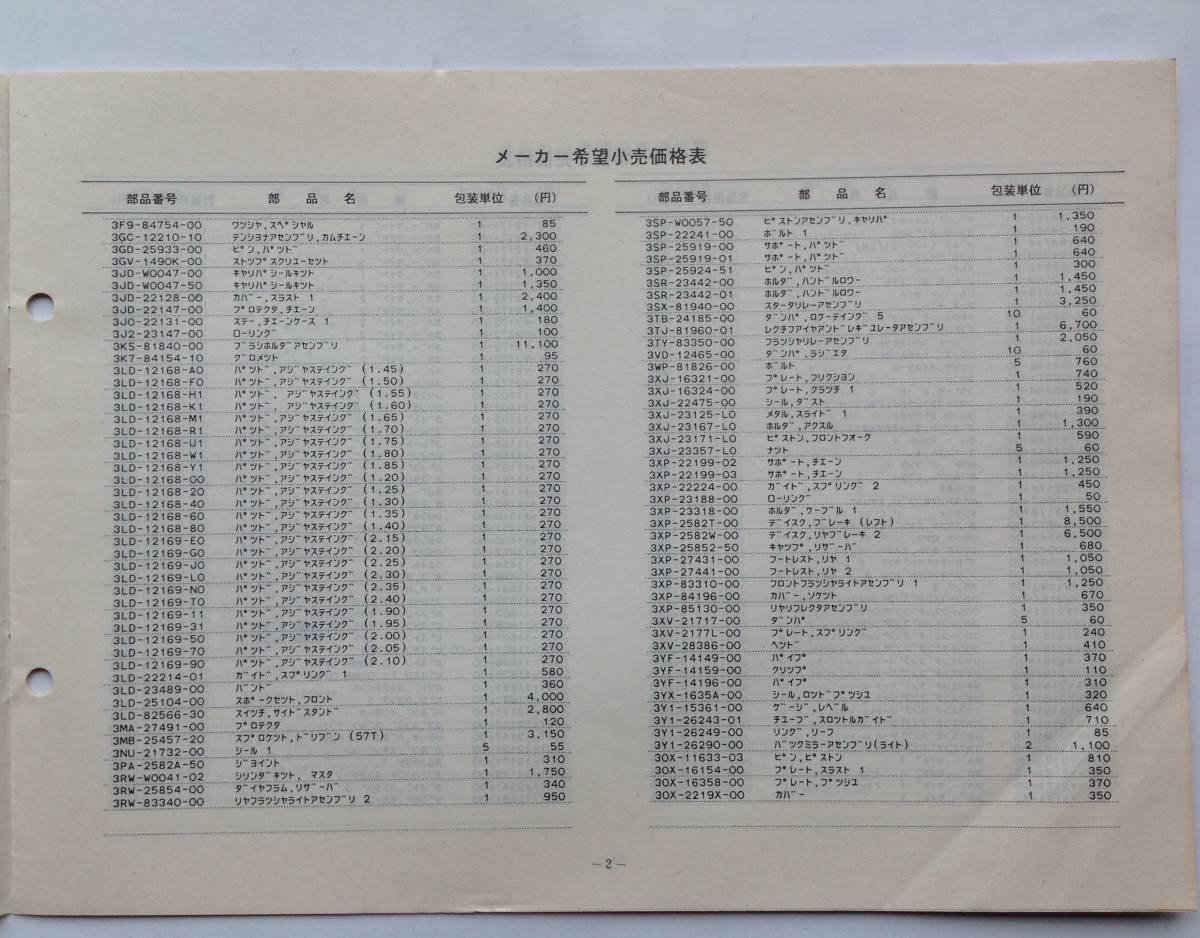 メーカー希望小売価格表
部品番号 部品名 包装単位 (円)
3F9-84754-00 ワツシヤ,スペシヤル 1 85
3GC-12210-10 テンシヨナアセンブリ,カムチエーン 1 2,300
3GD-25933-00 ピン,パツド 1 460
3GV-1490K-00 ストツプスクリユーセツト 1 370
3JD-W0047-00 キヤリパシールキツト 1 1,000
3JD-W0047-50 キヤリパシールキツト 1 1,350
3JD-22128-00 カバー,スラスト 1 1 2,400
3JD-22147-00 プロテクタ,チエーン 1 1,400
3J0-22131-00 ステー,チエーンケース 1 1 180
3J2-23147-00 ローリング 1 100
3KS-81840-00 ブラシホルダアセンブリ 1 11,100
3K7-84154-10 グロメツト 1 95
3LD-12168-A0 パツド,アジヤステイング (1.45) 1 270
3LD-12168-F0 パツド,アジヤステイング (1.50) 1 270
3LD-12168-H1 パツド, アジヤステイング (1.55) 1 270
3LD-12168-K1 パツド, アジヤステイング (1.60) 1 270
3LD-12168-M1 パツド,アジヤステイング (1.65) 1 270
3LD-12168-R1 パツド,アジヤステイング (1.70) 1 270
3LD-12168-U1 パツド,アジヤステイング (1.75) 1 270
3LD-12168-W1 パツド,アジヤステイング (1.80) 1 270
3LD-12168-Y1 パツド,アジヤステイング (1.85) 1 270
3LD-12168-00 パツド,アジヤステイング (1.20) 1 270
3LD-12168-20 パツド,アジヤステイング (1.25) 1 270
3LD-12168-40 パツド,アジヤステイング (1.30) 1 270
3LD-12168-60 パツド,アジヤステイング (1.35) 1 270
3LD-12168-80 パツド,アジヤステイング (1.40) 1 270
3LD-12169-E0 パツド,アジヤステイング (2.15) 1 270
3LD-12169-G0 パツド,アジヤステイング (2.20) 1 270
3LD-12169-J0 パツド,アジヤステイング (2.25) 1 270
3LD-12169-L0 パツド,アジヤステイング (2.30) 1 270
3LD-12169-N0 パツド,アジヤステイング (2.35) 1 270
3LD-12169-T0 パツド,アジヤステイング (2.40) 1 270
3LD-12169-11 パツド,アジヤステイング (1.90) 1 270
3LD-12169-31 パツド,アジヤステイング (1.95) 1 270
3LD-12169-50 パツド,アジヤステイング (2.00) 1 270
3LD-12169-70 パツド,アジヤステイング (2.05) 1 270
3LD-12169-90 パツド,アジヤステイング (2.10) 1 270
3LD-22214-01 ガイド,スプリング 1 1 580
3LD-23489-00 バンド 1 360
3LD-25104-00 スポークセツト,フロント 1 4,000
3LD-82566-30 スイツチ,サイドスタンド 1 2,800
3MA-27491-00 プロテクタ 1 120
3MB-25457-20 スプロケツト,ドリブン (57T) 1 3,150
3NU-21732-00 シール 1 5 55
3PA-2582A-50 ジヨイント 1 310
3RW-W0041-02 シリンダキツト, マスタ 1 1,750
3RW-25854-00 ダイヤフラム,リザーバ 1 340
3RW-83340-00 リヤフラツシヤライトアセンブリ 2 1 950
部品番号 部品名 包装単位 (円)
3SP-W0057-50 ピストンアセンブリ,キヤリパ 1 1,350
3SP-22241-00 ボルト 1 1 190
3SP-25919-00 サポート,パツド 1 640
3SP-25919-01 サポート,パツド 1 640
3SP-25924-51 ピン,パツド 1 300
3SR-23442-00 ホルダ,ハンドルロワー 1 1,450
3SR-23442-01 ホルダ,ハンドルロワー 1 1,450
3SX-81940-00 スタータリレーアセンブリ 1 3,250
3TB-24185-00 ダンパ,ロケーテイング 5 10 60
3TJ-81960-01 レクチフアイヤアンドレギユレータアセンブリ 1 6,700
3TY-83350-00 フラツシヤリレーアセンブリ 1 2,050
3VD-12465-00 ダンパ,ラジエタ 10 60
3WP-81826-00 ボルト 5 760
3XJ-16321-00 プレート,フリクシヨン 1 740
3XJ-16324-00 プレート,クラツチ 1 1 520
3XJ-22475-00 シール,ダスト 1 190
3XJ-23125-L0 メタル,スライド 1 1 390
3XJ-23167-L0 ホルダ,アクスル 1 1,300
3XJ-23171-L0 ピストン,フロントフオーク 1 590
3XJ-23357-L0 ナツト 5 60
3XP-22199-02 サポート,チエーン 1 1,250
3XP-22199-03 サポート,チエーン 1 1,250
3XP-22224-00 ガイド,スプリング 2 1 450
3XP-23188-00 ローリング 1 50
3XP-23318-00 ホルダ,ケーブル 1 1 1,550
3XP-2582T-00 デイスク,ブレーキ (レフト) 1 8,500
3XP-2582W-00 デイスク,リヤブレーキ 2 1 6,500
3XP-25852-50 キヤツプ,リザーバ 1 680
3XP-27431-00 フートレスト,リヤ 1 1 1,050
3XP-27441-00 フートレスト,リヤ 2 1 1,050
3XP-83310-00 フロントフラツシヤライトアセンブリ 1 1 1,250
3XP-84196-00 カバー,ソケツト 1 670
3XP-85130-00 リヤリフレクタアセンブリ 1 350
3XV-21717-00 ダンパ 5 60
3XV-2177L-00 プレート,スプリング 1 240
3XV-28386-00 ヘツド 1 410
3YF-14149-00 パイプ 1 370
3YF-14159-00 クリツプ 1 110
3YF-14196-00 パイプ 1 310
3YX-1635A-00 シール,ロツドプツシユ 1 320
3Y1-15361-00 ゲージ,レベル 1 640
3Y1-26243-01 チユーブ,スロツトルガイド 1 710
3Y1-26249-00 リング,リーフ 1 85
3Y1-26290-00 バツクミラーアセンブリ(ライト) 2 1,100
30X-11633-03 ピン,ピストン 1 810
30X-16154-00 プレート,スラスト 1 1 350
30X-16358-00 プレート,プツシユ 1 370
30X-2219X-00 カバー 1 350
-2-